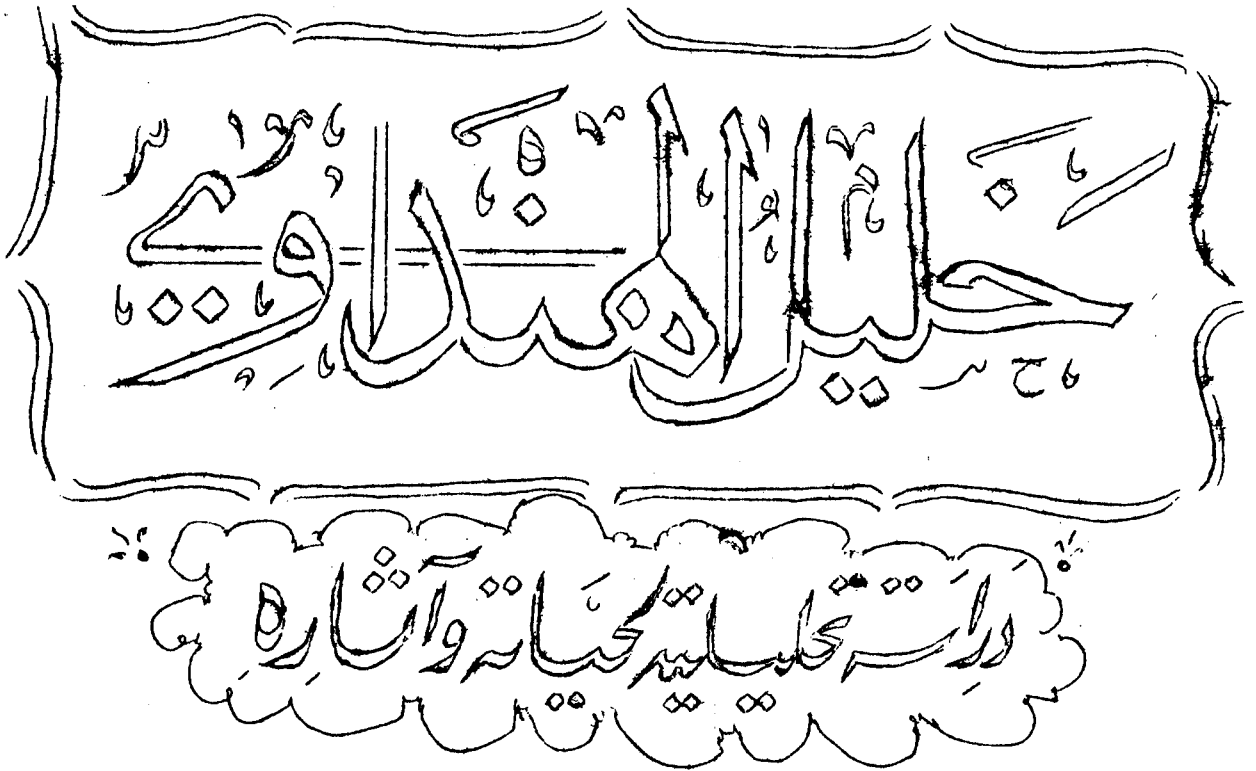 خليل الهنداوي
دراسة تحليلية لحياته وآثاره